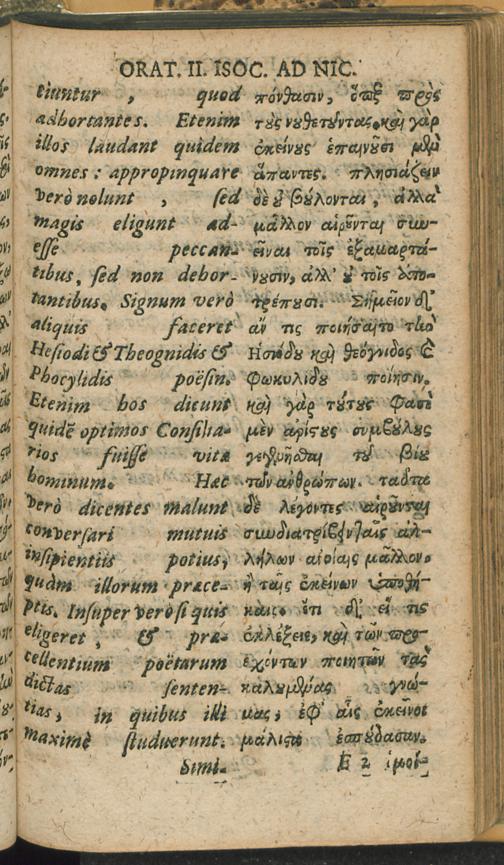 ORAT. II. ISOC. AD NIC.
tiuntur , quod
adhortantes. Etenim
illos laudant quidem
omnes : appropinquare
verò nolunt , sed
magis eligunt ad-
esse peccan-
tibus, sed non dehor-
tantibus. Signum verò
aliquis faceret
Hesiodi & Theognidis &
Phocylidis poësin.
Etenim hos dicunt
quidē optimos Consilia-
rios fuisse vitæ
hominum. Hæc
verò dicentes malunt
conversari mutuis
insipientiis potius,
quàm illorum præce-
ptis. Insuper verò si quis
eligeret , & præ-
cellentium poëtarum
dictas senten-
tias, in quibus illi
maximè studuerunt.
simi-
πόνθασιν, ὅπερ πρὸς
τοὺς νουθετοῦντας. καὶ γὰρ
ἐκείνους ἐπαινοῦσι μὲν
ἅπαντες. πλησιάζειν
δὲ οὐ βούλονται, ἀλλὰ
μᾶλλον αἱροῦνται συν-
εῖναι τοῖς ἐξαμαρτά-
νουσιν, ἀλλ' οὐ τοῖς ἀπο-
τρέπουσι. Σημεῖον δ'
ἄν τις ποιήσαιτο τὴν
Ησιόδου καὶ θεόγνιδος καὶ
Φωκυλίδου ποίησιν.
καὶ γὰρ τούτους φασὶ
μὲν ἀρίστους συμβούλους
γεγενῆσθαι τοῦ βίου
τῶν ἀνθρώπων. ταῦτα
δὲ λέγοντες αἱροῦνται
συνδιατρίβειν ταῖς ἀλ-
λήλων ἀνοίαις μᾶλλον.
ἢ ταῖς ἐκείνων ὑποθή-
καις. ἔτι δ' εἴ τις
ἐκλέξειε, καὶ τῶν προ-
εχόντων ποιητῶν τὰς
καλουμένας γνώ-
μας, ἐφ' αἷς ἐκεῖνοι
μάλιστα ἐσπούδασαν.
E 2 ὁμοί-